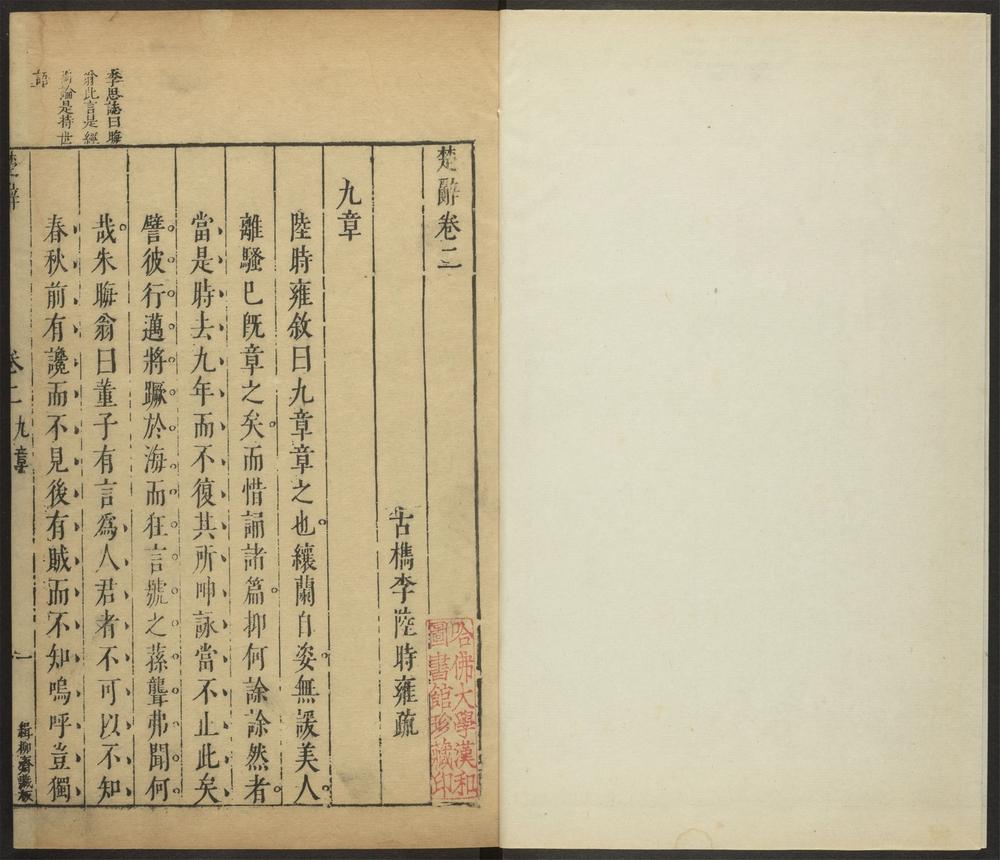 楚辭卷二
古檇李陸時雍疏
九章
陸時雍敘曰九章章之也纕蘭自姿無諼美人
離騷已旣章之矣而惜誦諸篇抑何諗諗然者
當是時去九年而不復其所呻詠當不止此矣
譬彼行邁將蹶於海而狂言號之蓀聾弗聞何
哉朱晦翁曰董子有言爲人君者不可以不知
春秋前有讒而不見後有賊而不知嗚呼豈獨
楚辭
卷二 九章
一
緝柳齋藏板
李思誌曰晦
翁此言是經
論是持世
語
哈佛大學漢和
圖書館珍藏印